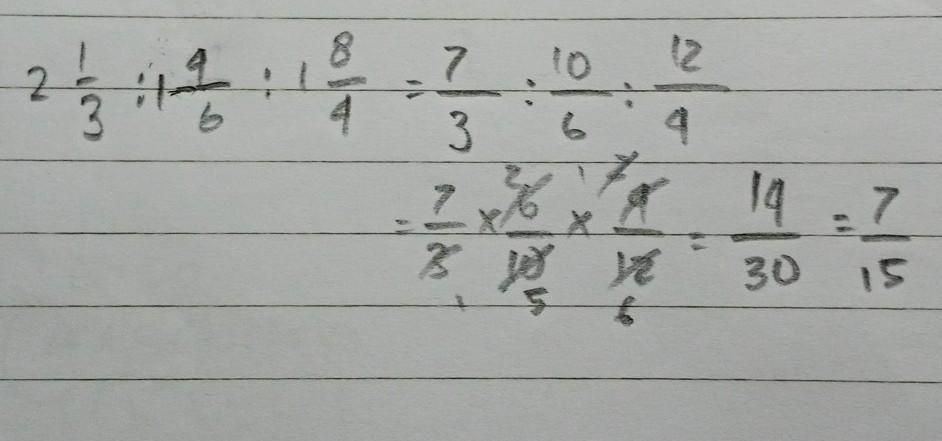 2 1/3 : 1 4/6 : 1 8/4 = 7/3 : 10/6 : 12/4
= 7/3 × 6/10 × 4/12 = 14/30 = 7/15